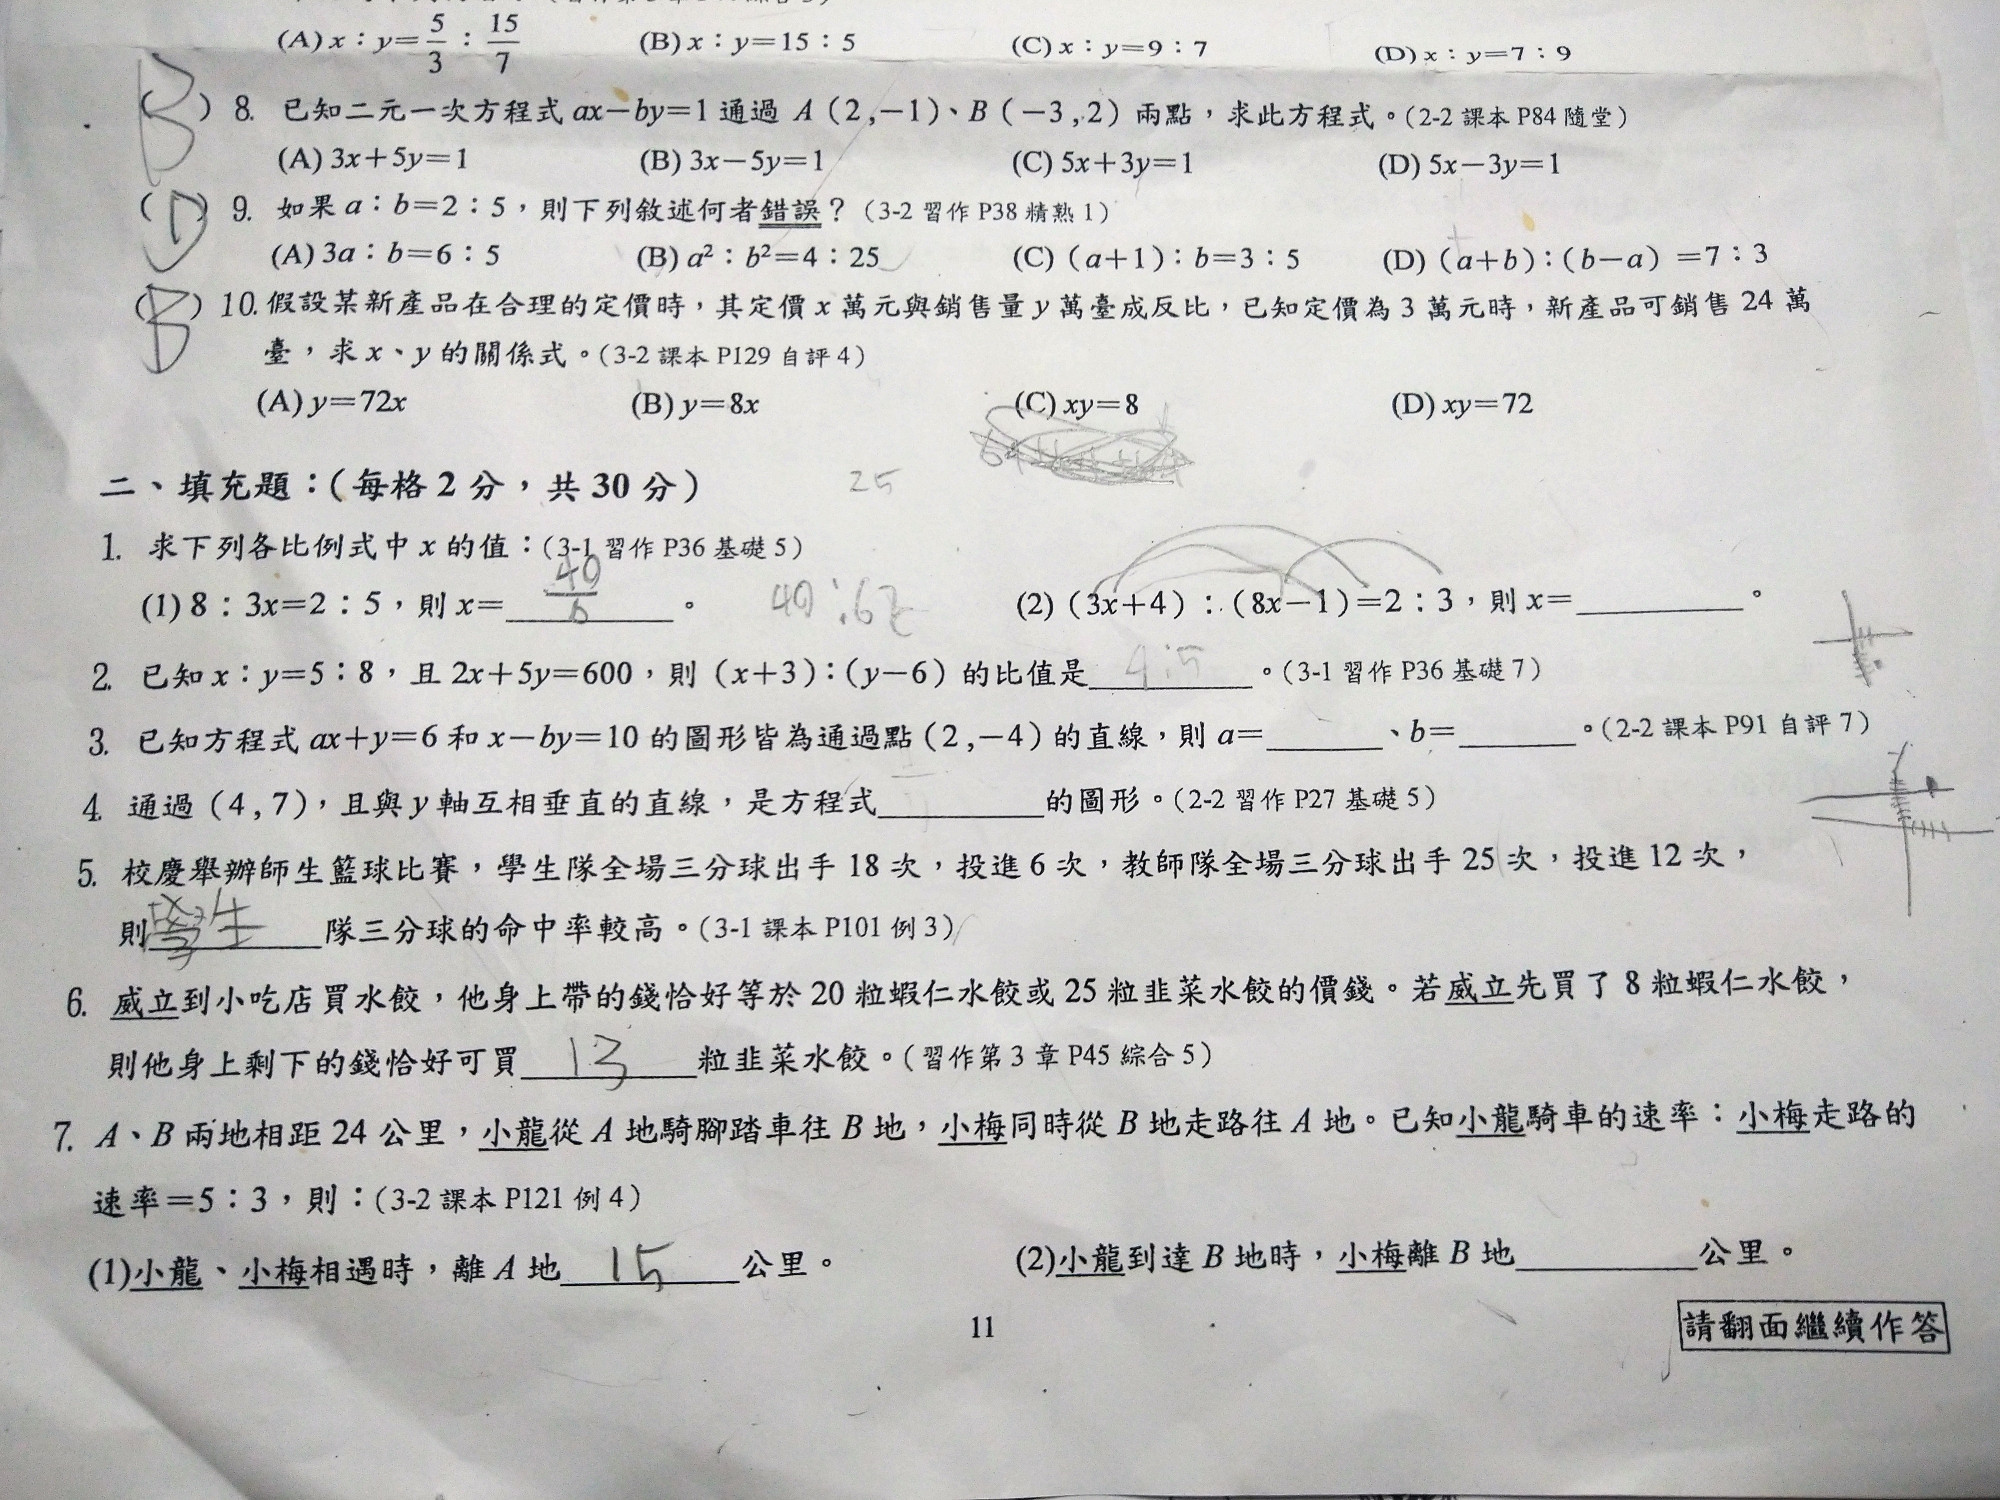 (A) x：y=5/3：15/7 (B) x：y=15：5 (C) x：y=9：7 (D) x：y=7：9
(B) 8. 已知二元一次方程式 ax－by=1 通過 A（2,－1）、B（－3,2）兩點，求此方程式。(2-2 課本 P84 隨堂)
(A) 3x＋5y=1 (B) 3x－5y=1 (C) 5x＋3y=1 (D) 5x－3y=1
(D) 9. 如果 a：b=2：5，則下列敘述何者錯誤？(3-2 習作 P38 精熟 1)
(A) 3a：b=6：5 (B) a²：b²=4：25 (C)（a+1）：b=3：5 (D)（a+b）：（b－a）=7：3
(B) 10. 假設某新產品在合理的定價時，其定價 x 萬元與銷售量 y 萬臺成反比，已知定價為 3 萬元時，新產品可銷售 24 萬
臺，求 x、y 的關係式。(3-2 課本 P129 自評 4)
(A) y=72x (B) y=8x (C) xy=8 (D) xy=72
二、填充題：(每格 2 分，共 30 分)
25
1. 求下列各比例式中 x 的值：(3-1 習作 P36 基礎 5)
(1) 8：3x=2：5，則 x= 40/6 。 (2)（3x+4）：（8x－1）=2：3，則 x=______。
2. 已知 x：y=5：8，且 2x＋5y=600，則（x+3）：（y－6）的比值是 4:5 。(3-1 習作 P36 基礎 7)
3. 已知方程式 ax+y=6 和 x－by=10 的圖形皆為通過點（2,－4）的直線，則 a=______、b=______。(2-2 課本 P91 自評 7)
4. 通過（4,7），且與 y 軸互相垂直的直線，是方程式______的圖形。(2-2 習作 P27 基礎 5)
5. 校慶舉辦師生籃球比賽，學生隊全場三分球出手 18 次，投進 6 次，教師隊全場三分球出手 25 次，投進 12 次，
則 學生 隊三分球的命中率較高。(3-1 課本 P101 例 3)
6. 威立到小吃店買水餃，他身上帶的錢恰好等於 20 粒蝦仁水餃或 25 粒韭菜水餃的價錢。若威立先買了 8 粒蝦仁水餃，
則他身上剩下的錢恰好可買 13 粒韭菜水餃。(習作第 3 章 P45 綜合 5)
7. A、B 兩地相距 24 公里，小龍從 A 地騎腳踏車往 B 地，小梅同時從 B 地走路往 A 地。已知小龍騎車的速率：小梅走路的
速率=5：3，則：(3-2 課本 P121 例 4)
(1)小龍、小梅相遇時，離 A 地 15 公里。 (2)小龍到達 B 地時，小梅離 B 地______公里。
11
請翻面繼續作答